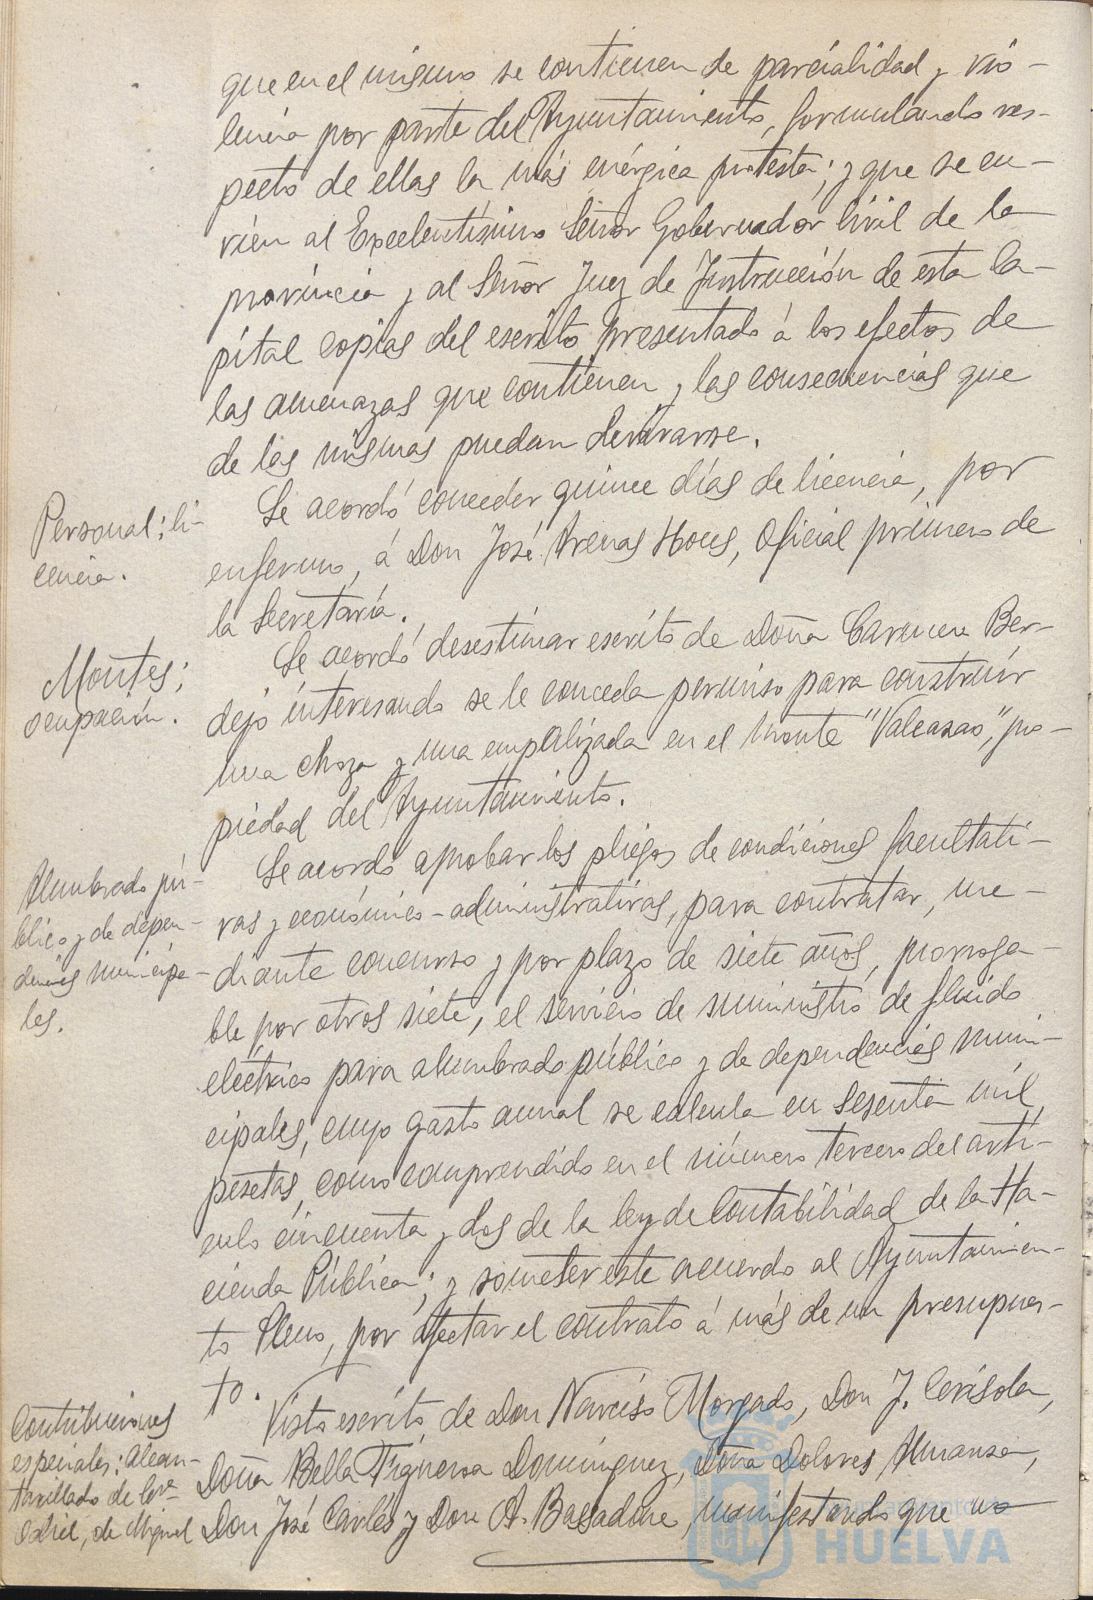 que en el mismo se contienen de parcialidad y vio-
lencia por parte del Ayuntamiento, formulando res-
pecto de ellas la más enérgica protesta; y que se en-
víen al Excelentísimo Señor Gobernador Civil de la
provincia y al Señor Juez de Instrucción de esta Ca-
pital copias del escrito presentado á los efectos de
las amenazas que contienen y las consecuencias que
de las mismas puedan derivarse.
Personal; li-
cencia.
Se acordó conceder quince días de licencia, por
enfermo, á Don José Arenas, Oficial primero de
la Secretaría.
Montes;
ocupación.
Se acordó desestimar escrito de Doña Carmen Ber-
dejo interesando se le conceda permiso para construir
una choza y una empalizada en el monte "Valcasao", pro-
piedad del Ayuntamiento.
Alumbrado pú-
blico y de depen-
dencias municipa-
les.
Se acordó aprobar los pliegos de condiciones facultati-
vas y económico-administrativas, para contratar, me-
diante concurso y por plazo de siete años, prorroga-
ble por otros siete, el servicio de suministro de fluido
eléctrico para alumbrado público y de dependencias muni-
cipales, cuyo gasto anual se calcula en sesenta mil
pesetas, como comprendido en el número tercero del artí-
culo cincuenta y dos de la ley de Contabilidad de la Ha-
cienda Pública; y someter este acuerdo al Ayuntamien-
to Pleno, por afectar el contrato á más de un presupues-
to.
Contribuciones
especiales: Alcan-
tarillado de
de Miguel
Visto escrito de Don Narciso Morgado, Don J. Cerisola,
Doña Bella Figueroa Domínguez, Doña Dolores Almansa,
Don José Carlés y Don A. Balsadone, manifestando que no
Ayuntamiento de
HUELVA